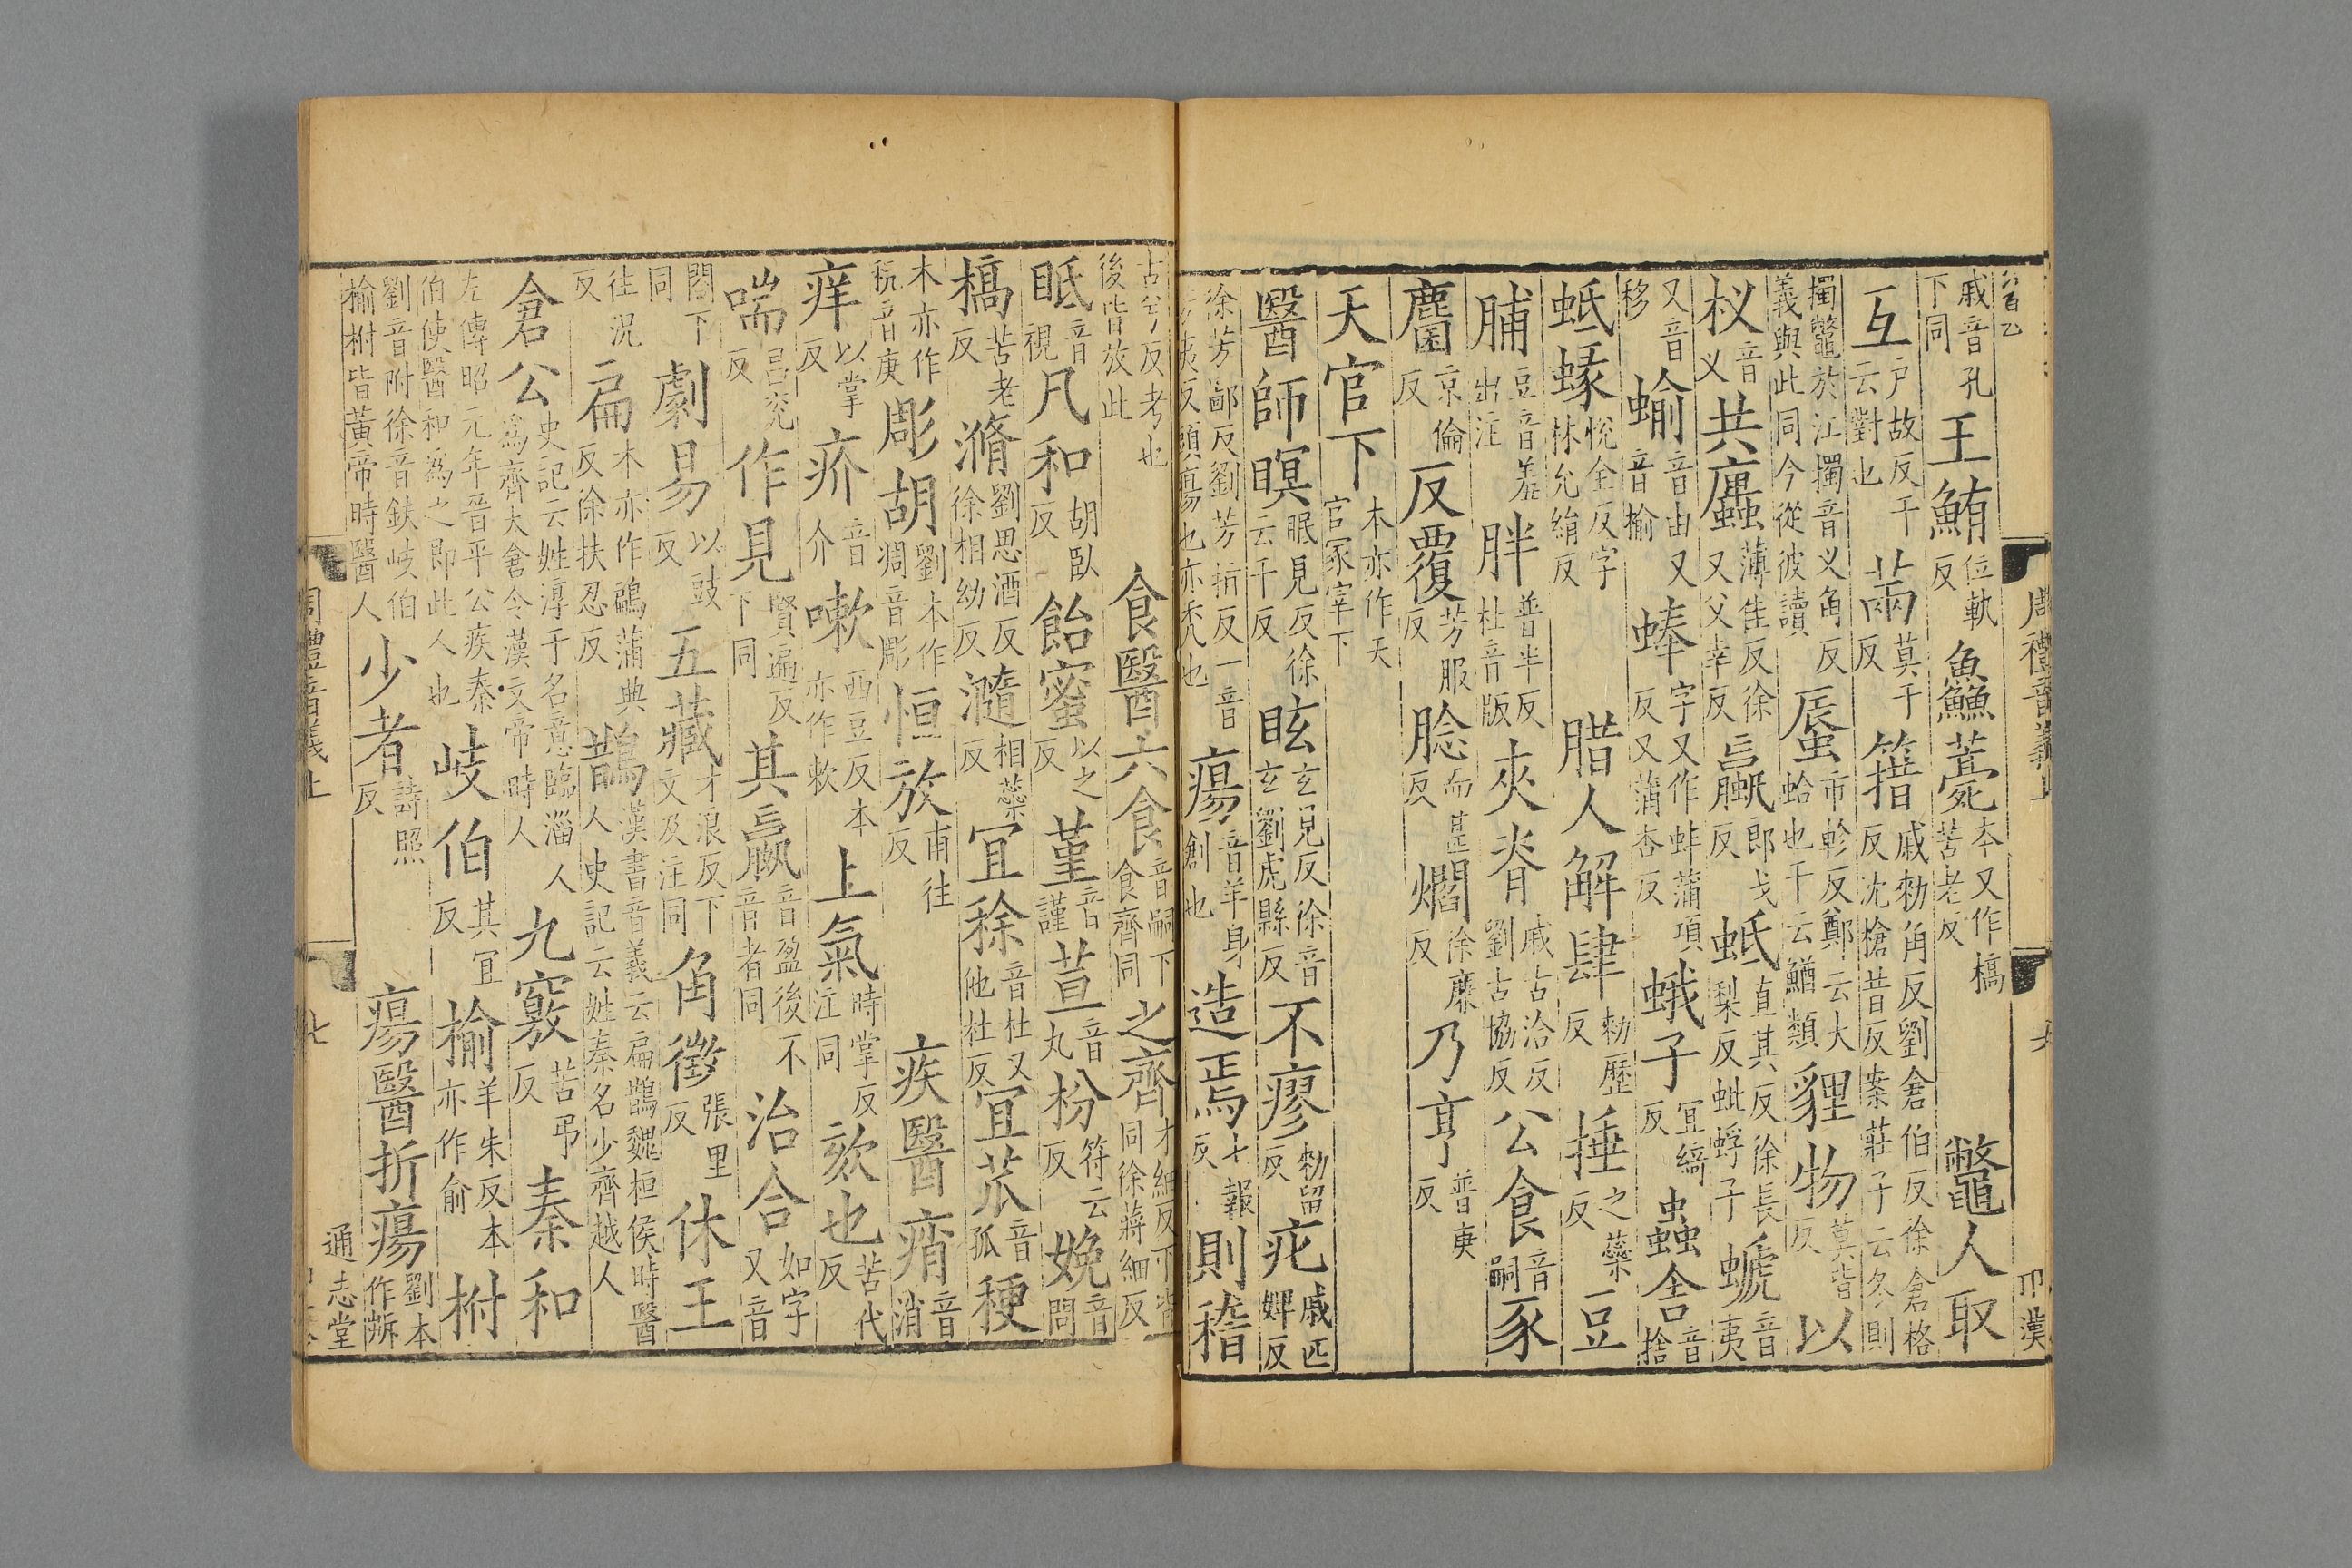 戚音孔下同 王鮪位軌反 魚鱻薧本又作槁苦老反 鼈人取
互戶故反干云對也 㒼莫干反 簎戚勑角反劉倉伯反徐倉格反沈槍昔反案莊子云冬則
擉鼈於江擉音义角反義與此同今從彼讀 蜃市軫反鄭云大蛤也干云鱛類 貍物莫皆反 以
杈音义 共蠯薄佳反徐又父幸反 蠃郎戈反 蚳直其反徐長梨反蚍蜉子 螔音夷
又音移 蝓音由又音榆 蜯字又作蚌蒲項反又蒲杏反 蛾子冝綺反 蟲舍音捨
蚳蝝悅全反字林允絹反 腊人解肆勑歷反 捶之蘂反 豆
脯豆音羞出注 胖普半反杜音版 夾脊戚古洽反劉古協反 公食音嗣 豕
麕京倫反 反覆芳服反 腍而甚反 爓徐廉反 乃亨普庚反
天官下本亦作天官冢宰下
醫師瞑眠見反徐云千反 眩玄見反徐音玄劉虎縣反 不瘳勑留反 疕戚匹婢反
徐芳鄙反劉芳指反一音芳夷反頭瘍也亦禿也 瘍音羊身創也 造焉七報反 則稽
古兮反考也後皆放此 食醫六食音嗣下食齊同 之齊才細反下皆同徐蔣細反
眡音視 凡和胡臥反 飴蜜以之反 堇音謹 荁音丸 枌符云反 娩音問
槁苦老反 滫劉思酒反徐相幼反 瀡相蘂反 冝稌音杜又他杜反 冝苽音孤 稉
本亦作秔音庚 彫胡劉本作凋音彫 恒放甫往反 疾醫痟音消
痒以掌反 疥音介 嗽西豆反本亦作欶 上氣時掌反注同 欬也苦代反
喘昌兖反 作見賢遍反下同 其蠃音盈後不音者同 治合如字又音
閤下同 劇易以豉反 五藏才浪反下文及注同 角徵張里反 休王
往況反 扁本亦作鶣蒲典反徐扶忍反 鵲漢書音義云扁鵲魏桓侯時醫人史記云姓秦名少齊越人
倉公史記云姓淳于名意臨淄人爲齊大倉令漢文帝時人 九竅苦弔反 秦和
左傳昭元年晉平公疾秦伯使醫和爲之即此人也 岐伯其冝反 榆羊朱反本亦作俞 柎
劉音附徐音鈇岐伯榆柎皆黃帝時醫人 少者詩照反 瘍醫折瘍劉本作㿈
周禮音義上
七
通志堂